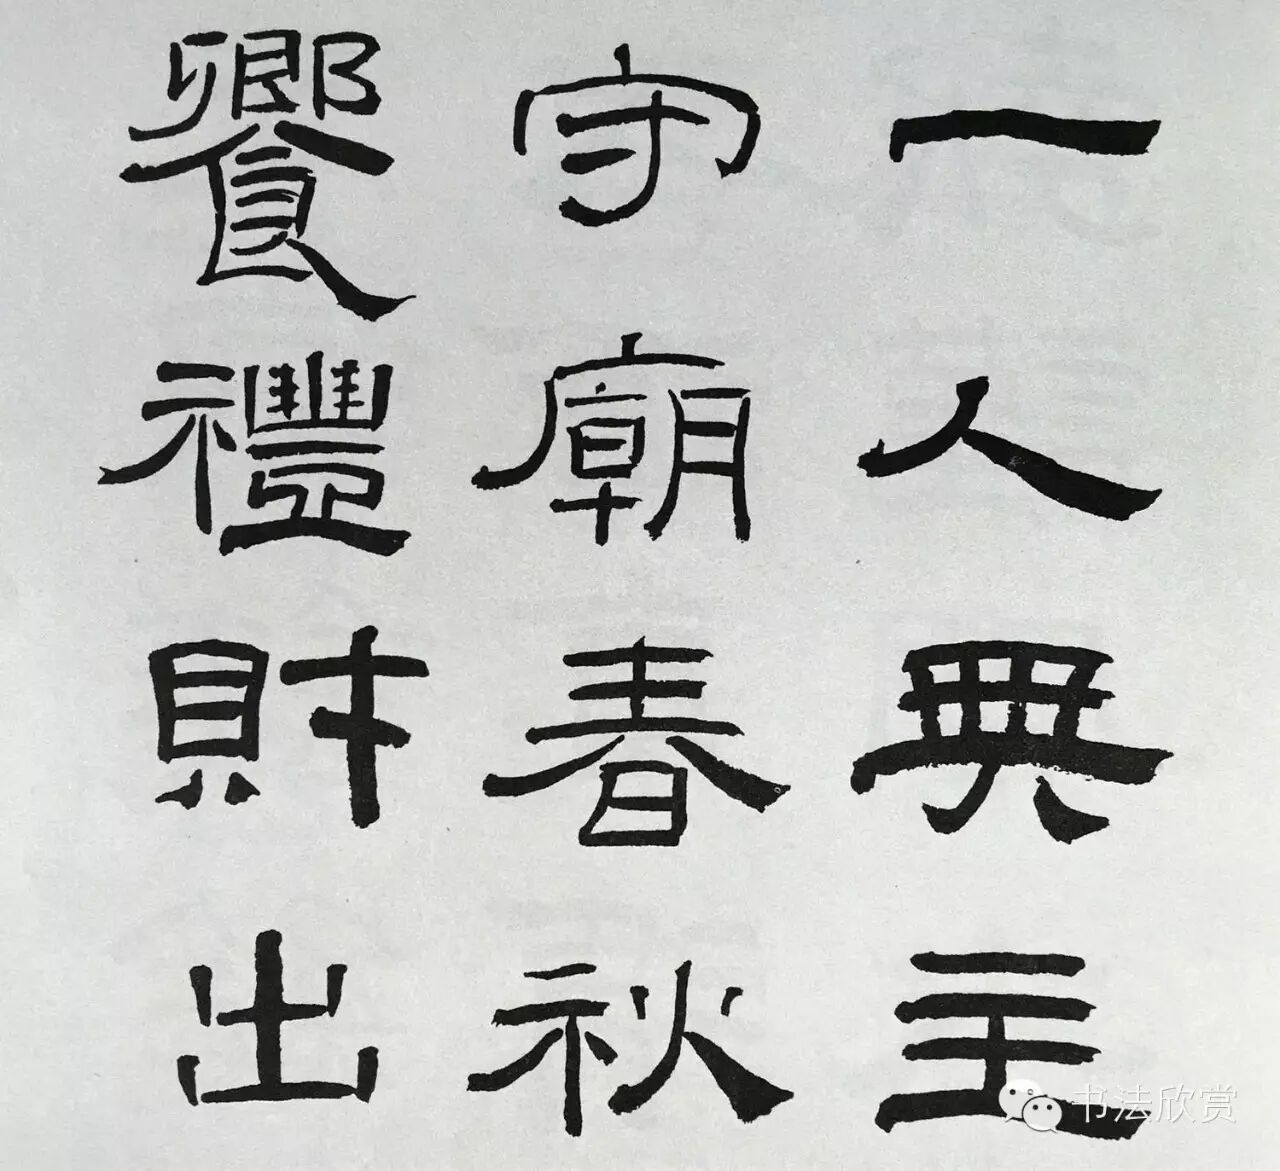 一人典主
守廟春秋
饗禮財出
书法欣赏